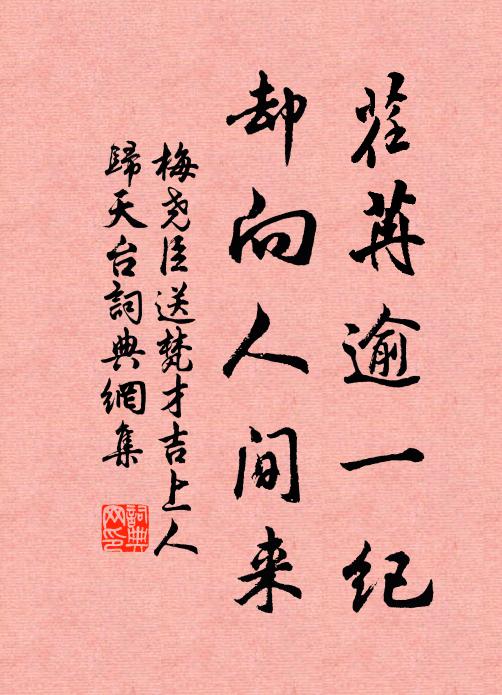 荏苒逾一纪
却向人间来
梅尧臣送梵才吉上人
歸天台詞典網集
詞典网印